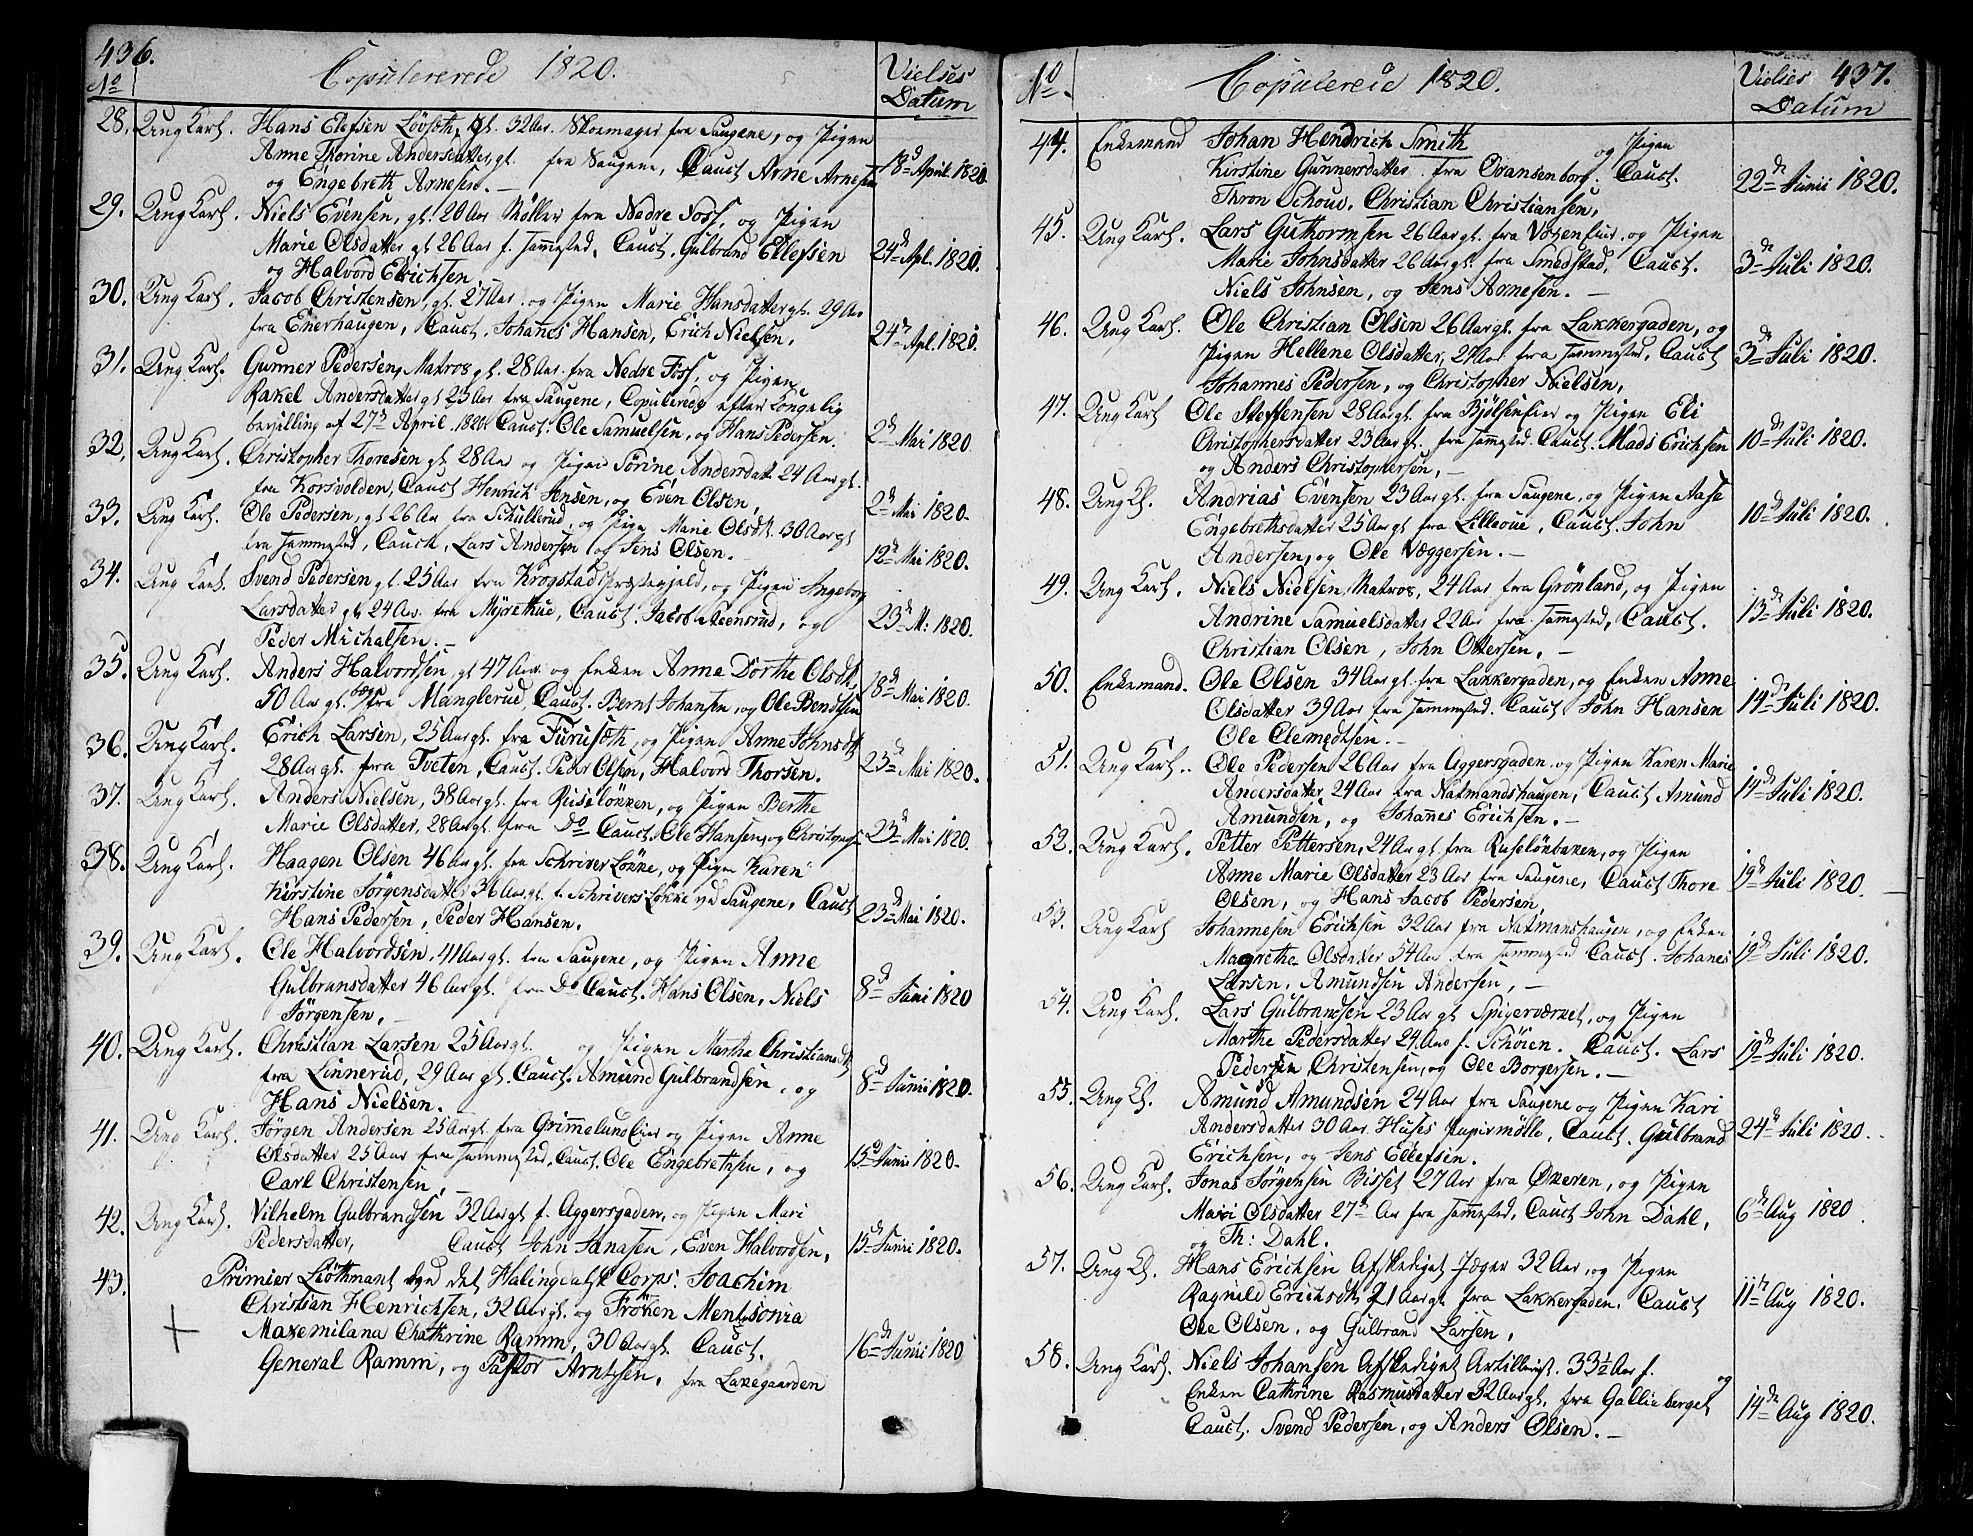 436.
Copulererede 1820.
Vielses
Datum
No
28. Ung Karl. Hans Elefsen Lövseth, gl. 32 Aar. Skomager fra Saugene, og Pigen
Anne Thorine Andersdatter gl. fra Saugene, Cauct Arne Arnesen
og Engebreth Arnesen. 18d April 1820
29. Ung Karl. Niels Evensen, gl. 20 Aar Möller fra Nedre Foss, og Pigen
Marie Olsdatter gl 26 Aar f. Sammested, Cauct. Gulbrand Ellefsen
og Halvord Erichsen 24de Apl. 1820.
30. Ung Karl. Jacob Christensen, gl. 27 Aar. og Pigen Marie Hansdatter gl. 29 Aar
fra Enerhaugen, Cauct. Johanes Hansen, Erich Nielsen. 24de Apl. 1820.
31. Ung Karl. Gunner Pedersen, Matros gl. 28 Aar. fra Nedre Foss, og Pigen
Rakel Andersdatter gl 25 Aar fra Saugene, Copulerede efter Kongelig
bevilling af 27de April 1820 Cauct. Ole Samuelsen, og Hans Pedersen. 2d Mai 1820
32. Ung Karl. Christopher Thoresen gl. 28 Aar og Pigen Sörine Andersdatt. 24 Aar gl.
fra Korsvolden, Cauct Henrich Jensen, og Even Olsen, 2d Mai 1820.
33. Ung Karl. Ole Pedersen, gl 26 Aar fra Schullerud, og Pige Marie Olsdt. 30 Aar gl
fra Sammested, Cauct, Lars Andersen og Jens Olsen. 12d Mai 1820.
34. Ung Karl. Svend Pedersen gl. 25 Aar fra Krogstad Præstegjeld, og Pigen Ingeborg
Larsdatter gl 24 Aar. fra Myrehue, Cauct. Jacob Steensrud, og
Peder Michalsen. 23d M: 1820.
35. Ung Karl. Anders Halvordsen, gl 47 Aar og Enken Anne Dorthe Olsdt.
50 Aar gl. begge fra Manglerud, Cauct. Bernt Johansen, og Ole Bendtsen 18d Mai 1820.
36. Ung Karl. Erich Larsen, 25 Aar gl. fra Furuseth, og Pigen Anne Johnsdt
28 Aar gl. fra Tveten, Cauct. Peder Olsen, Halvord Thorsen. 23d Mai 1820.
37. Ung Karl. Anders Nielsen, 38 Aar gl. fra Ruselökken, og Pigen Berthe
Marie Olsdatter, 28 Aar gl. fra Do Cauct. Ole Hansen, og Christophs. 23d Mai 1820.
38. Ung Karl. Haagen Olsen 46 Aar gl. fra Schriver Lökke, og Pigen Karen
Kirstine Jörgensdatter 36 Aar gl. f. Schrivers Lökke ved Saugene, Cauct
Hans Pedersen, Peder Hansen. 23d Mai 1820.
39. Ung Karl. Ole Halvordsen, 41 Aar gl. fra Saugene, og Pigen Anne
Gulbransdatter 46 Aar gl. fra Do Cauct. Hans Olsen, Niels
Jörgensen. 8d Juni 1820
40. Ung Karl. Christian Larsen 25 Aar gl. og Pigen Marthe Christiansdt
fra Linnerud, 29 Aar gl. Cauct. Amund Gulbrandsen, og
Hans Nielsen. 8d Junii 1820.
41. Ung Karl. Jörgen Andersen 25 Aar gl. fra Grimmelund Eier og Pigen Anne
Olsdatter 25 Aar fra Sammested, Cauct. Ole Engebretsen, og
Carl Christensen, 15d Junii 1820.
42. Ung Karl. Vilhelm Gulbrandsen 32 Aar gl f. Aggersgaden, og Pigen Mari
Pedersdatter, Cauct John Janasen, Even Halvordsen, 15de Junii 1820.
43. Primier Liöthnant ved det Halingdalsk Corps. Joachim
Christian Henrichsen, 32 Aar gl. og Fröken Mentsonia
Maxemilana Chathrine Ramm, 30 Aar gl. Cauct.
General Ramm, og Pastor Arntsen, fra Laxegaarden 16de Junii 1820
437.
Copulerede 1820.
Vielses
Datum
No.
44. Enkemand Johan Hendrich Smith og Pigen
Kirstine Gunnersdatter. fra Svansenborg. Cauct.
Thron Schouv. Christian Christiansen, 22de Junii 1820.
45. Ung Karl. Lars Guthormsen 26 Aar gl. fra Voxen Eier, og Pigen
Marie Johnsdatter 26 Aar gl. fra Smedstad, Cauct.
Niels Johnsen, og Jens Arnesen. 3de Juli 1820.
46. Ung Karl. Ole Christian Olsen 26 Aar gl. fra Lakkergaden, og
Pigen Hellene Olsdatter, 27 Aar fra Sammested, Cauct
Johannes Pedersen, og Christopher Nielsen, 3de Juli 1820.
47. Ung Karl Ole Steffensen 28 Aar gl. fra Bjölsen Eier og Pigen Eli
Christophersdatter 23 Aar gl. fra Sammested. Cauct. Mads Erichsen
og Anders Christophersen, 10de Juli 1820.
48. Ung Kl. Andrias Evensen 23 Aar gl. fra Saugene, og Pigen Aase
Engebrethsdatter 25 Aar gl fra Lilleoue, Cauct. John
Andersen, og Ole Væggersen. 10de Juli 1820.
49. Ung Karl. Niels Nielsen, Matros, 24 Aar fra Grönland, og Pigen
Andrine Samuelsdatter 22 Aar fra Sammested, Cauct.
Christian Olsen, John Ottersen. 13de Juli 1820.
50. Enkemand. Ole Olsen 34 Aar gl. fra Lakkergaden, og Enken Anne
Olsdatter 39 Aar fra Sammested. Cauct. John Hansen
Ole Clemedtsen. 14de Juli 1820.
51. Ung Karl. Ole Pedersen 26 Aar fra Aggersgaden. og Pigen Karen Marie
Andersdatter, 24 Aar fra Natmandshaugen, Cauct Amund
Amundsen, og Johanes Erichsen. 14de Juli 1820.
52. Ung Karl. Petter Pettersen, 24 Aar gl fra Ruselönbaken, og Pigen
Anne Marie Olsdatter 23 Aar fra Saugene, Cauct Thore
Olsen, og Hans Jacob Pedersen, 19de Juli 1820.
53. Ung Karl Johannesen Erichsen 32 Aar fra Natmanshaugen, og Enken
Magrethe Olsdatter 54 Aar fra Sammested Cauct. Johanes
Larsen, Amundsen Andersen, 19de Juli 1820.
54. Ung Karl. Lars Gulbrandsen 23 Aar gl Spigerværket, og Pigen
Marthe Pedersdatter 24 Aar f. Schöien. Cauct. Lars
Pedersen Christensen, og Ole Borgersen. 19de Juli 1820.
55. Ung Kl. Amund Amundsen 24 Aar fra Saugene og Pigen Kari
Andersdatter 30 Aar. Huses Papirmölle, Cauct. Gulbrand
Erichsen, og Jens Ellefsen. 24de Juli 1820.
56. Ung Karl. Jonas Jörgensen Bisset 27 Aar fra Økeren, og Pigen
Mari Olsdatter 27 Aar fra Sammested, Cauct John Dahl,
og Th: Dahl. 6de Aug 1820
57. Ung Kl. Hans Erichsen Afskediget Jæger 32 Aar, og Pigen
Ragnild Erichsdt. 21 Aar gl. fra Lakkergaden. Cauct
Ole Olsen, og Gulbrand Larsen, 11te Aug 1820.
58. Ung Karl. Niels Johansen Afskediget Artillerist. 33½ Aar f. og
Enken Cathrine Rasmusdatter 32 Aar gl. fra Gallieberget
Cauct. Svend Pedersen, og Anders Olsen. 14de Aug 1820.